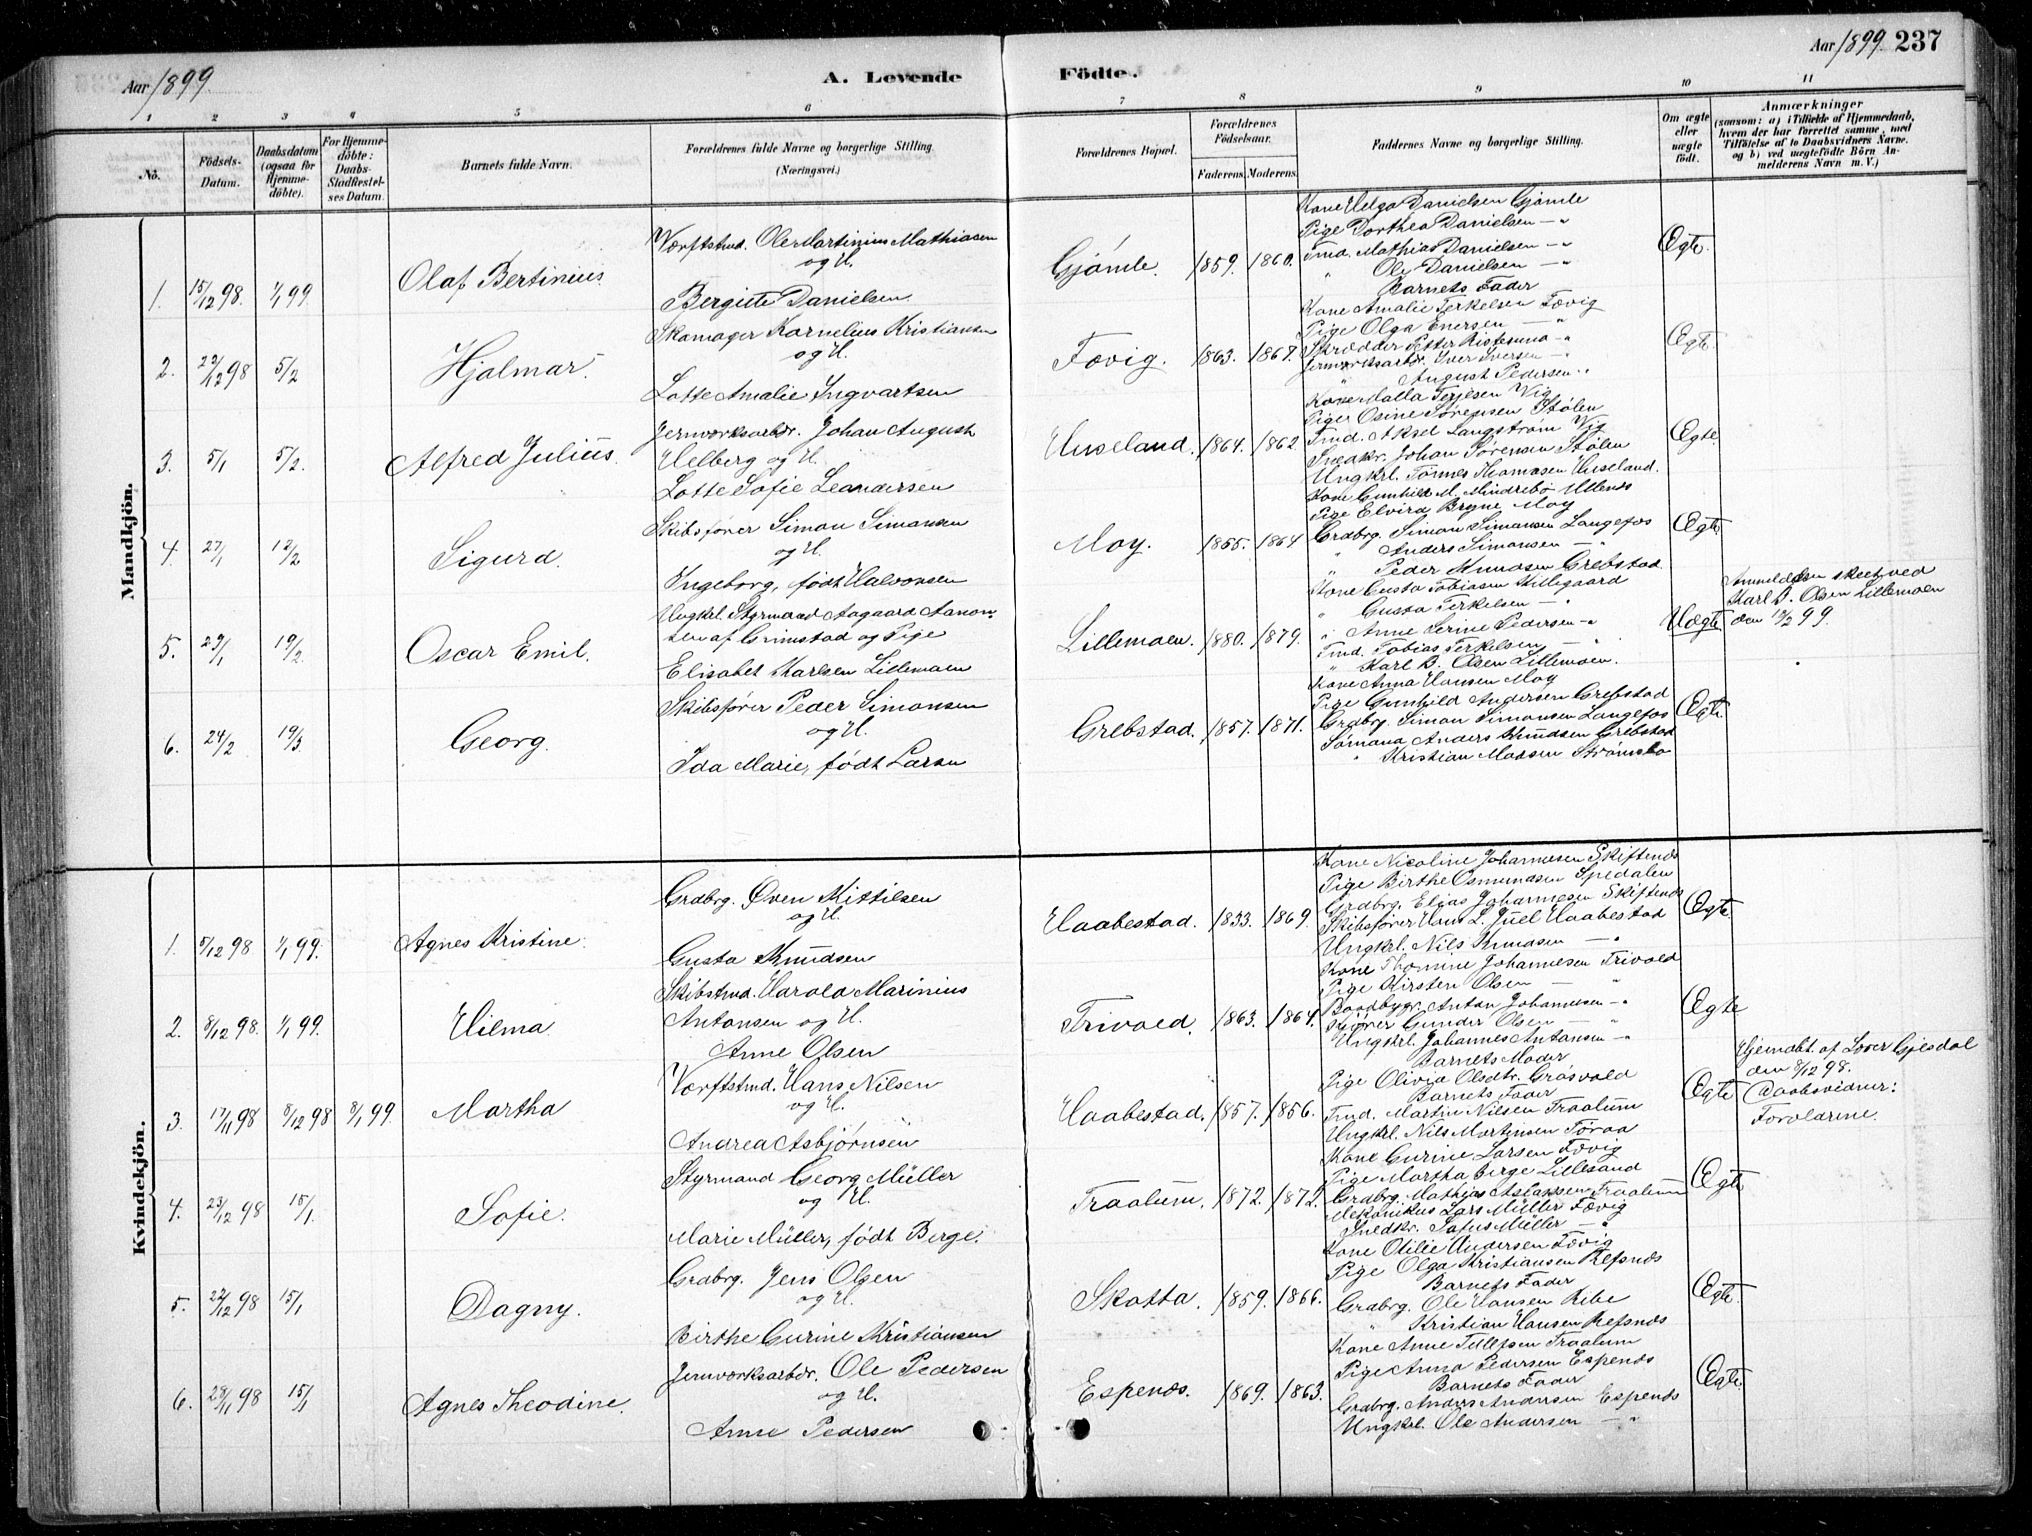 Aar 1899
A. Levende
Födte.
Aar 1899. 237
1 2 3 4 5 6 7 8 9 10 11
No.
Födsels-Datum.
Daabsdatum (ogsaa for Hjemme-döbte).
For Hjemme-döbte: Daabs-Stadfæstel-ses Datum.
Barnets fulde Navn.
Forældrenes fulde Navne og borgerlige Stilling. (Næringsvei.)
Forældrenes Bopæl.
Forældrenes Födselsaar.
Faderens. Moderens.
Faddernes Navne og borgerlige Stilling.
Om ægte eller uægte födt.
Anmærkninger
(saasom: a) i Tilfælde af Hjemmedaab,
hvem der har forrettet samme, med
Tilföielse af to Daabsvidners Navne.
og b) ved uægtefödte Börn An-
melderens Navn m. V.)
Mandkjön.
1. 15/12 98 1/1 99. Olaf Bertinius
Værftstmd. Ole Martinius Mathiasen
og H.
Bergitte Danielsen
Gjömle. 1859. 1860.
Kone Helga Danielsen Gjömle
Pige Dorthea Danielsen — "
Tmd. Mathias Danielsen — "
" Ole Danielsen — "
Barnets Fader
Ægte.
2. 22/12 98 5/2 Hjalmar.
Skomager Kornelius Kristiansen
og H.
Lotte Amalie Ingvartsen
Fævig. 1863. 1867.
Kone Amalie Terkelsen Fævig
Pige Olga Enersen — "
Skrædder Petter
Jernværksarbdr. Iver Iversen — "
" August Pedersen "
Ægte.
3. 5/1 5/2. Alfred Julius.
Jernværksarbdr. Johan August
Helberg og H.
Lotte Sofie Leandersen
Huseland. 1864. 1862
Kone Malla Terjesen Vig
Pige Osine Sørensen Stølen
Tmd. Aksel Langstrøm Vig
Snedkr. Johan Sørensen Stølen
Ungkrl. Tønnes Thomasen Huseland.
Ægte
4. 27/1 12/2 Sigurd.
Skibsfører Simon Simonsen
og H.
Ingeborg, født Halvorsen
Moy. 1855. 1864
Kone Gunhild M. Mindrebø Ullenes
Pige Elvira Bryne Moy
Grdbrg. Simon Simonsen Langefos
" Anders Simonsen — "
" Peder Knudsen Grebstad
Ægte
5. 23/1 19/2. Oscar Emil.
Ungkrl. Styrmand Aagaard Aanon-
sen af Grimstad og Pige
Elisabet Karlsen Lillemoen
Lillemoen. 1880. 1879.
Kone Gusta Tobiasen Killegaard
" Gusta Terkelsen — "
" Anne Serine Pedersen — "
Tmd. Tobias Terkelsen —
" Karl B. Olsen Lillemoen.
Uægte
Anmeldelsen skeet ved
Karl B. Olsen Lillemoen
den 12/2 99.
6. 24/2 19/3. Georg.
Skibsfører Peder Simonsen
og H.
Ida Marie, født Larsen
Grebstad. 1857. 1871.
Kone Anna Hansen Moy
Pige Gunhild Andersen Grebstad
Grdbrg. Simon Simonsen Langefos
Sømand Anders Knudsen Grebstad
" Kristian Madsen Strømsbo
Ægte.
Kvindekjön.
1. 5/12 98 1/1 99. Agnes Kristine.
Grdbrg. Øven Kittilsen
og H.
Gusta Knudsen
Haabestad. 1833. 1869
Kone Nicoline Johannesen Skiftenes
Pige Birthe Osmundsen Spedalen
Grdbrg. Elias Johannesen Skiftenes
Skibsfører Hans L. Juel Haabestad
Ungkrl. Nils Knudsen — "
Ægte
2. 8/12 98. 1/1 99. Hilma
Skibstmd. Harald Marinius
Antonsen og H.
Anne Olsen
Trivold. 1863. 1864.
Kone Thomine Johannesen Trivold
Pige Kirsten Olsen — "
Baadbygr. Anton Johannesen — "
Gunder Olsen — "
Ungkrl. Johannes Antonsen — "
Ægte
3. 17/11 98 8/12 98 8/1 99. Martha
Værftstmd. Hans Nilsen
og H.
Andrea Asbjørnsen
Haabestad. 1857. 1856.
Barnets Moder
Pige Olivia Olsdtr. Grøsvold
Barnets Fader
Tmd. Martin Nilsen Traalum
Ungkrl. Nils Martinsen Tøraa
Ægte
Hjemdøbt af Lærer Gjesdal
den 8/12 98.
Daabsvidner:
Forældrene.
4. 23/12 98 15/1. Sofie.
Styrmand Georg Müller
og H.
Marie Müller, født Berge.
Traalum. 1872. 1872.
Kone Gurine Larsen Fævig
Pige Martha Berge Lillesand
Grdbrg. Mathias Aslaksen Traalum
Mekanikus Lars Müller Fævig
Snedkr. Sofus Müller — "
Ægte
5. 22/12 98 15/1 Dagny.
Grdbrg. Jens Olsen
og H.
Birthe Gurine Kristiansen
Skotta. 1859. 1866.
Kone Otilie Andersen Fævig
Pige Olga Kristiansen Refsnes
Barnets Fader
Grdbrg. Ole Hansen Ribe
" Kristian Hansen Refsnes
Ægte.
6. 28/11 98 15/1 Agnes Theodine.
Jernværksarbdr. Ole Pedersen
og H.
Anne Pedersen
Espenes. 1869. 1863.
Kone Anne Tellefsen Traalum
Pige Anna Pedersen Espenes
Barnets Fader
Grdbrg. Anders Andersen Espenes
Ungkrl. Ole Andersen — "
Ægte.